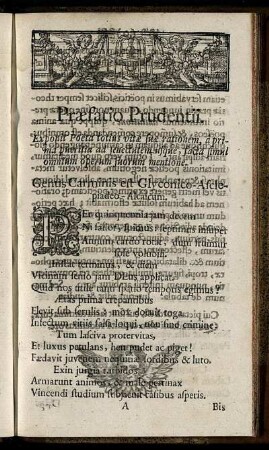 Præfatio Prudentii.
Exponit Poeta totius vitæ suæ rationem, à pri-
ma pueritia ad senectutem usque, facta simul
omnium operum suorum mentione.
Genus Carminis est Glyconico-Ascle-
piadeo-Alcaicum.
PEr quinquennia jam decem
Ni fallor, fuimus: septimus insuper
Annum cardo rotat, dum fruimur
sole volubili.
Instat terminus, & diem
Vicinum senio jam Deus applicat.
Quid nos utile tanti spatio temporis egimus?
Ætas prima crepantibus
Flevit sub ferulis: mox docuit toga
Infectum vitiis falsa loqui, non sine crimine:
Tum lasciva protervitas,
Et luxus petulans, heu pudet ac piget!
Fœdavit juvenem nequitiæ sordibus & luto.
Exin jurgia turbidos
Armarunt animos, & male pertinax
Vincendi studium subjacuit casibus asperis.
A
Bis